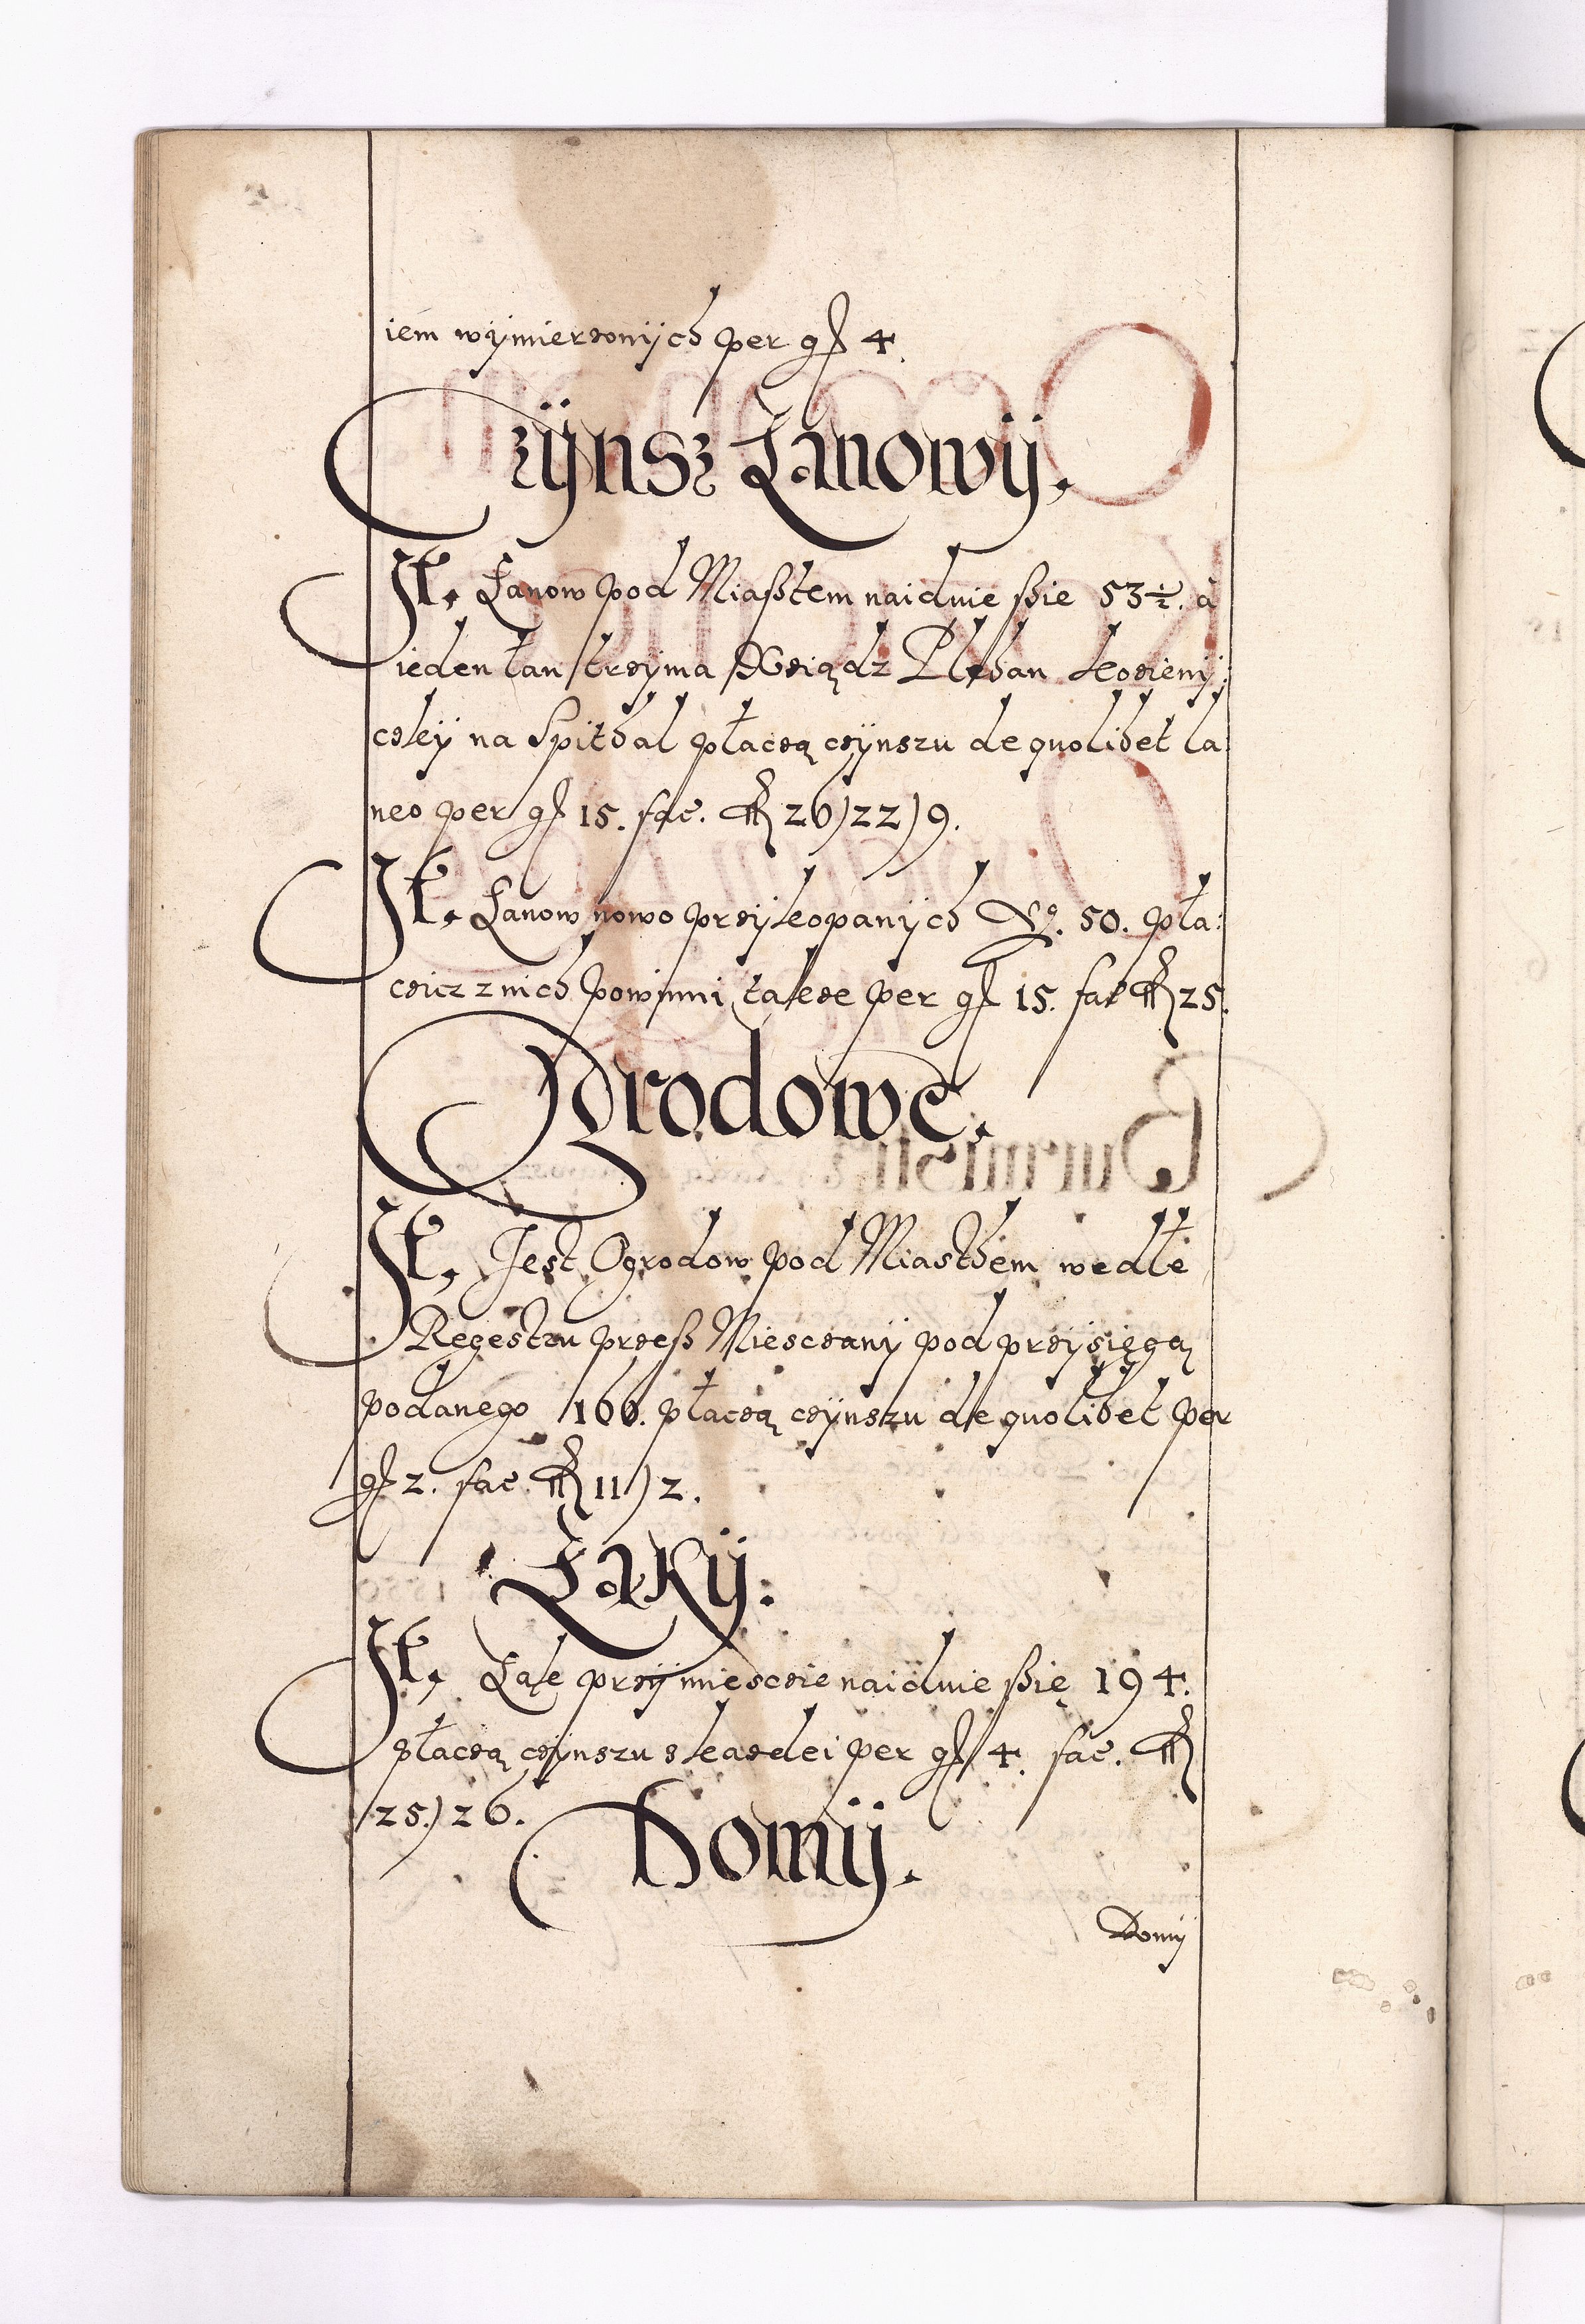 iem wÿmierzonÿch per gſ 4.
Czÿnsz Łanowÿ.
It. Łanow pod Miaßtem naiduie ßie 53½. à
ieden łan trzÿma Xsiądz Pleban kozieny:
czkÿ na Spithal płaczą czÿnszu de quolibet la:
neo per gſ 15. fac. fl 26) 22) 9.
It. Łanow nowo przÿkopanÿch No. 50. pła:
czicz z nich powinni, takze per gſ 15. fac fl 25.
Ogrodowe.
It. Jest Ogrodow pod Miasthem wedle
Regestru przeß Miesczanÿ pod przÿsięgą
podanego 166. płaczą czÿnszu de quolibet per
gſ 2. fac. fl 11) 2.
Łąkÿ:
It. Łąk przÿ miesczie naiduie ßię 194.
płaczą czÿnszu s kazdei per gſ 4. fac. fl
25.) 26.
Domÿ.
Domÿ